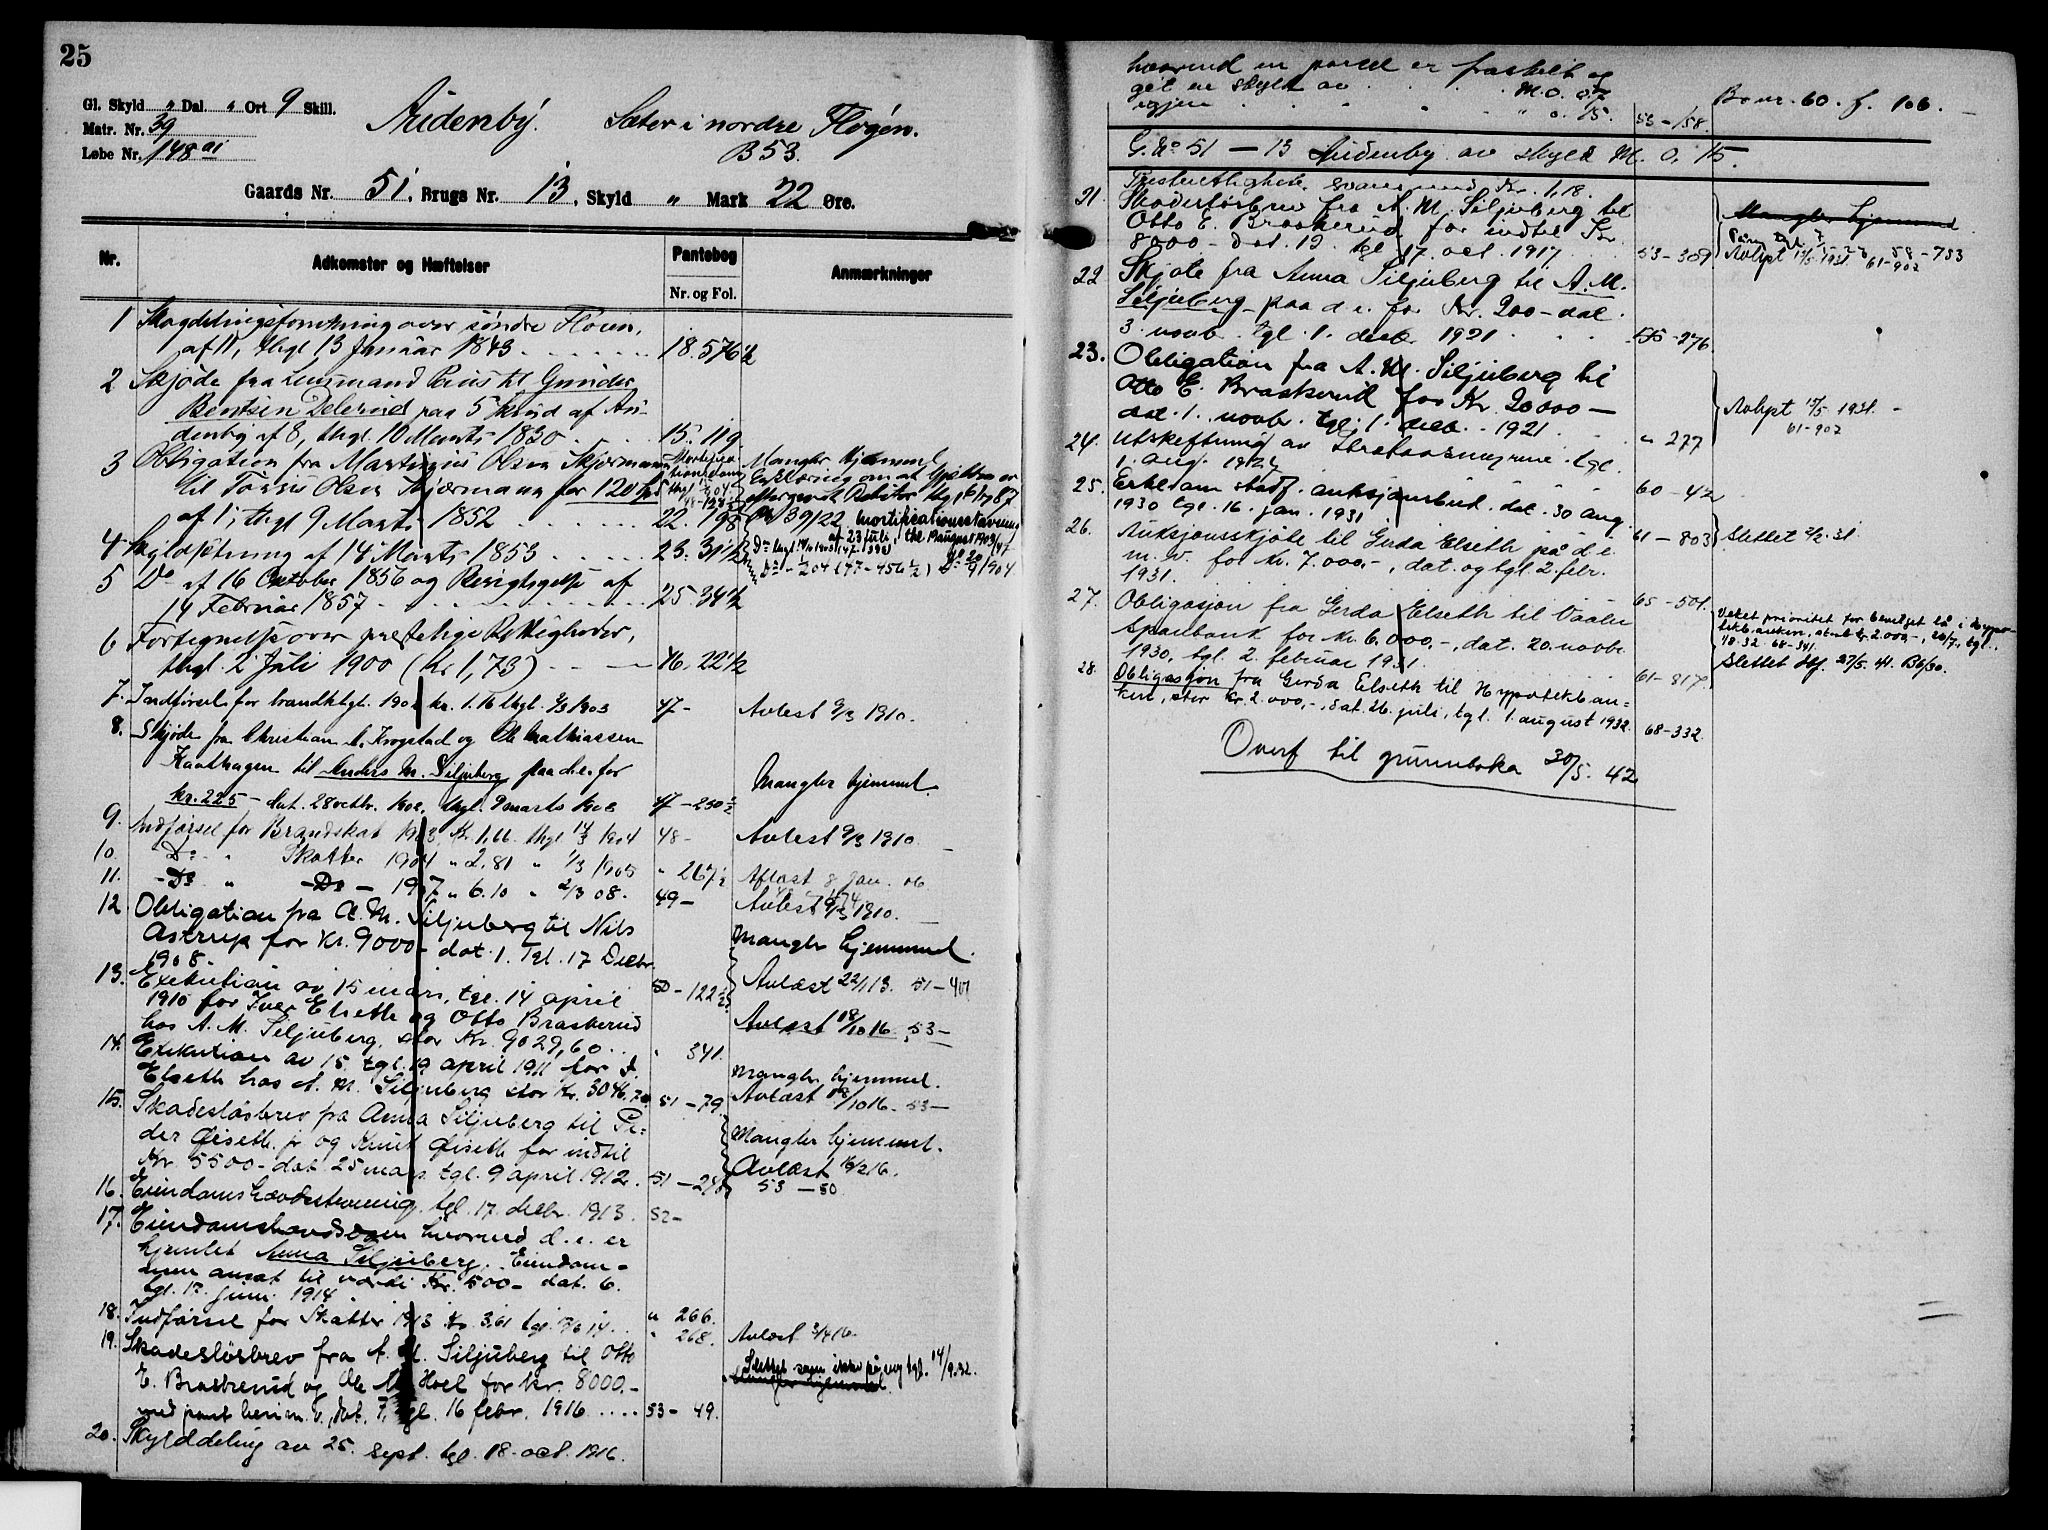 25
Gl. Skyld " Dal. " Ort 9 Skill.
Matr. Nr. 39
Løbe Nr. 148 a1
Audenby. Sæter i nordre Fløgen.
B 53.
Gaards Nr. 51, Brugs Nr. 13, Skyld " Mark 22 Øre.
Nr. Adkomster og Hæftelser Pantebog Nr. og Fol. Anmærkninger
1 Skogdelingsforretning over søndre Fløien,
af 11, thgl 13 Januar 1843 18. 576 1/2
2 Skjøde fra Lensmand til Gunder
Bentsen Delerud paa 5 af Au-
denby af 8, thgl. 10 Marts 1830 15. 119.
3 Obligation fra Martinius Olsen Skjærmann
til Olsen Skjærmann for 120 Spd
af 1, thgl 9 Marts 1852 22. 198
Mangler hjemmel
Erklæring om at Gjelden er
eftergivet Debitor
39/22 Mortifikationsstævning
af 23 juli, thl. 1903
4 Skyldsetning af 14 Marts 1853 23. 31 1/2
5 Do af 16 Oktober 1856 og Berigtigelse af
14 Februar 1857 25. 34 1/2
6 Fortegnelse over præstelige Rettigheder,
thgl. 2 Juli 1900 (Kr 1,73) 46. 22 1/2
7. Indførsel for brandktgt. 1902 kr. 1.16 thgl. 1/3 1903 47 - Avlest 9/3 1910.
8. Skjøde fra Christian A. Krogstad og Ole Mathiassen
Kaathagen til Anders M. Siljuberg paa d.e. for
kr. 225 - dat. 28 octbr. 1902, thgl. 9 marts 1908 47 - 250 1/2 Mangler hjemmel.
9. Indførsel for Brandskat 1903 Kr. 1,66 thgl 14/3 1904 48 - Avlest 9/3 1910.
10. Do " Skatter 1904 " 2.81 " 1/3 1905 " 267 1/2 Aflæst 8 Jan. 06
11. - Do " - Do - 1907 " 6.10 " 2/3 08. 49 - Avlest 9/3 1910.
12 Obligation fra A. M. Siljuberg til Nils
Astrup for Kr. 9000 - dat. 1. Tgl. 17 Decbr.
1908. 50 - 122 1/2
Mangler hjemmel.
Avlæst 22/1 13. 51 - 401
13. Exekution av 15 mars, tgl. 14 april
1910 for Iver Elseth og Otto Braskerud
hos A. M. Siljuberg, stor Kr. 9029,60 " 341. Avlæst 18/10 16. 53 -
14. Exekution av 15. tgl. 19 april 1911 for I.
Elseth hos A. M. Siljuberg stor Kr. 3046.70 51 - 79.
Mangler hjemmel.
Avlæst 18/10 16. 53 -
15. Skadesløsbrev fra Anna Siljuberg til Pe-
der Øiseth jr og Knut Øiseth for indtil
Kr. 5500 - dat. 25 mars, tgl. 9 april 1912. 51 -
Mangler hjemmel.
Avlæst 16/2 16.
53 - 50
16. Eiendomshævdstevning, tgl. 17. decbr. 1913. 52 -
17. Eiendomshævdsdom hvorved d. e. er
hjemlet Anna Siljuberg. Eiendom-
men ansat til værdi Kr. 500 - dat. 6.
tgl. 17. juni 1914. " 266.
18. Indførsel for Skatter 1913 Kr. 3,61 tgl. 14. " 268. Avlæst 3/4 16.
19. Skadesløsbrev fra A. M. Siljuberg til Otto
E. Braskerud og Ole M. Hoel for kr. 8000.-
med pant heri m. v., dat. 7, tgl. 16 febr. 1916 53 - 49.
Slettet som ikke påeng tgl. 14/9.32.
20. Skylddeling av 25. sept. tgl. 18. oct. 1916.
hvorved en parcel er fraskilt og
git en skyld av M. 0.07 Br. nr. 60. f. 106.
igjen " 0.15. 53 - 158.
G. No 51 - 13 Audenby av skyld M. 0,15.
svares med Kr. 1,18.
21. Skadesløsbrev fra A. M. Siljuberg til
Otto E. Braskerud for indtil Kr.
8000 - dat. 12. tgl 17. oct. 1917 53 - 309
Mangler hjemmel
58 - 753
Avlyst 15/5 1931. 61 - 902
22 Skjøte fra Anna Siljuberg til A. M.
Siljuberg paa d e. for Kr. 200 - dat.
3. novb. tgl. 1. decb. 1921 55 - 276
23. Obligation fra A. M. Siljuberg til
Otto E. Braskerud for Kr. 20000 -
dat. 1. novbr. tgl. 1. decb. 1921 " 277
Avlyst 15/5 1931. -
61 - 902
24. Utskiftning av tgl.
1. aug. 1924 60 - 42
25. Eiedom stadf. auksjonsbud, dat. 30 aug.
1930 tgl. 16. jan. 1931 61 - 803 Slettet 2/2. 31.
26. Auksjonsskjøte til Gerda Elseth på d.e.
m. v. for kr. 7.000,-, dat. og tgl. 2. febr.
1931. 65 - 501.
27. Obligasjon fra Gerda Elseth til Vaaler
Sparebank for kr. 6.000,-, dat. 20. novbr.
1930, tgl. 2. februar 1931. 61 - 817.
Veket prioritet for beviljet lån i Hypo-
tekbanken, stort kr. 2.000,-, 26/7, tgl.
1/8-32 68-341.
Slettet 27/5. 41. B6/30.
28. Obligasjon fra Gerda Elseth til Hypotekban-
ken, stor kr. 2.000,-, dat. 26. juli, tgl. 1. august 1932. 68-332.
Overf til grunnboka 30/5. 42